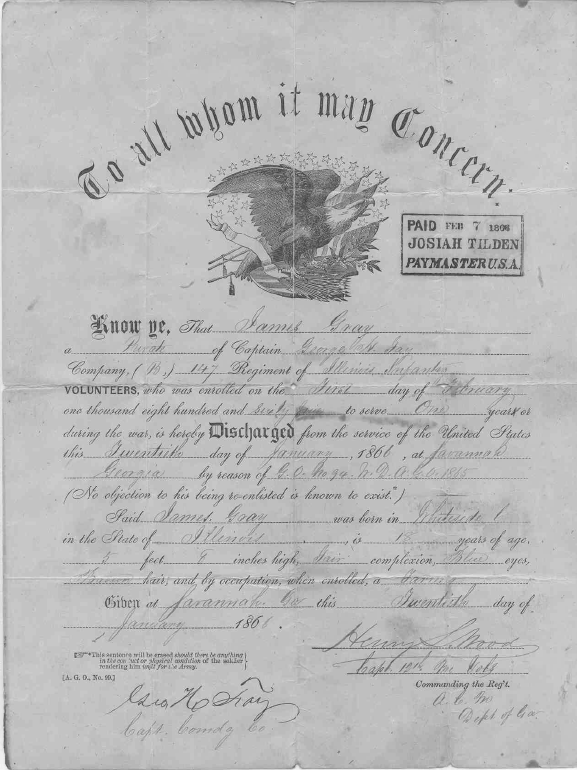 To all whom it may Concern:
PAID FEB 7 1866
JOSIAH TILDEN
PAYMASTER U.S.A.
Know ye, That James Gray
a Private of Captain George H. Fay
Company, (B,) 147 Regiment of Illinois Infantry
VOLUNTEERS, who was enrolled on the First day of February
one thousand eight hundred and Sixty five to serve One years or
during the war, is hereby Discharged from the service of the United States
this Twentieth day of January, 1866, at Savannah
Georgia by reason of G.O. No 94 W.D.A.G.O. 1865
(No objection to his being re-enlisted is known to exist.*)
Said James Gray was born in Whiteside
in the State of Illinois, is 18 years of age,
5 feet inches high, Fair complexion, Blue eyes,
Brown hair, and, by occupation, when enrolled, a Farmer
Given at Savannah Ga this Twentieth day of
January 1866.
*This sentence will be erased should there be anything
in the conduct or physical condition of the soldier
rendering him unfit for the Army.
[A. G. O., No. 99.]
Henry S. Wood
Capt 12th Me Vols
Commanding the Reg't.
A. C. M.
Dept of Ga.
Geo H Fay
Capt. Comdg Co